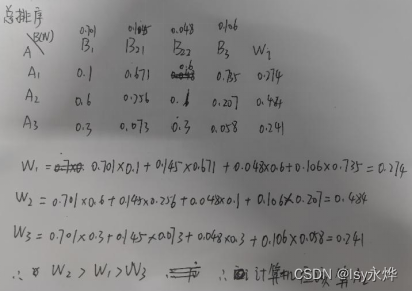 总排序
0.701 0.145 0.048 0.106
B(W) B₁ B₂₁ B₂₂ B₃ W₃
A
A₁ 0.1 0.671 0.6 0.735 0.274
A₂ 0.6 0.256 0.1 0.207 0.484
A₃ 0.3 0.073 0.3 0.058 0.241
W₁ = 0.701×0.1+0.145×0.671+0.048×0.6+0.106×0.735=0.274
W₂ = 0.701×0.6+0.145×0.256+0.048×0.1+0.106×0.207=0.484
W₃ = 0.701×0.3+0.145×0.073+0.048×0.3+0.106×0.058=0.241
∴ W₂ > W₁ > W₃ ∴ 计算机
CSDN @lsy永烨